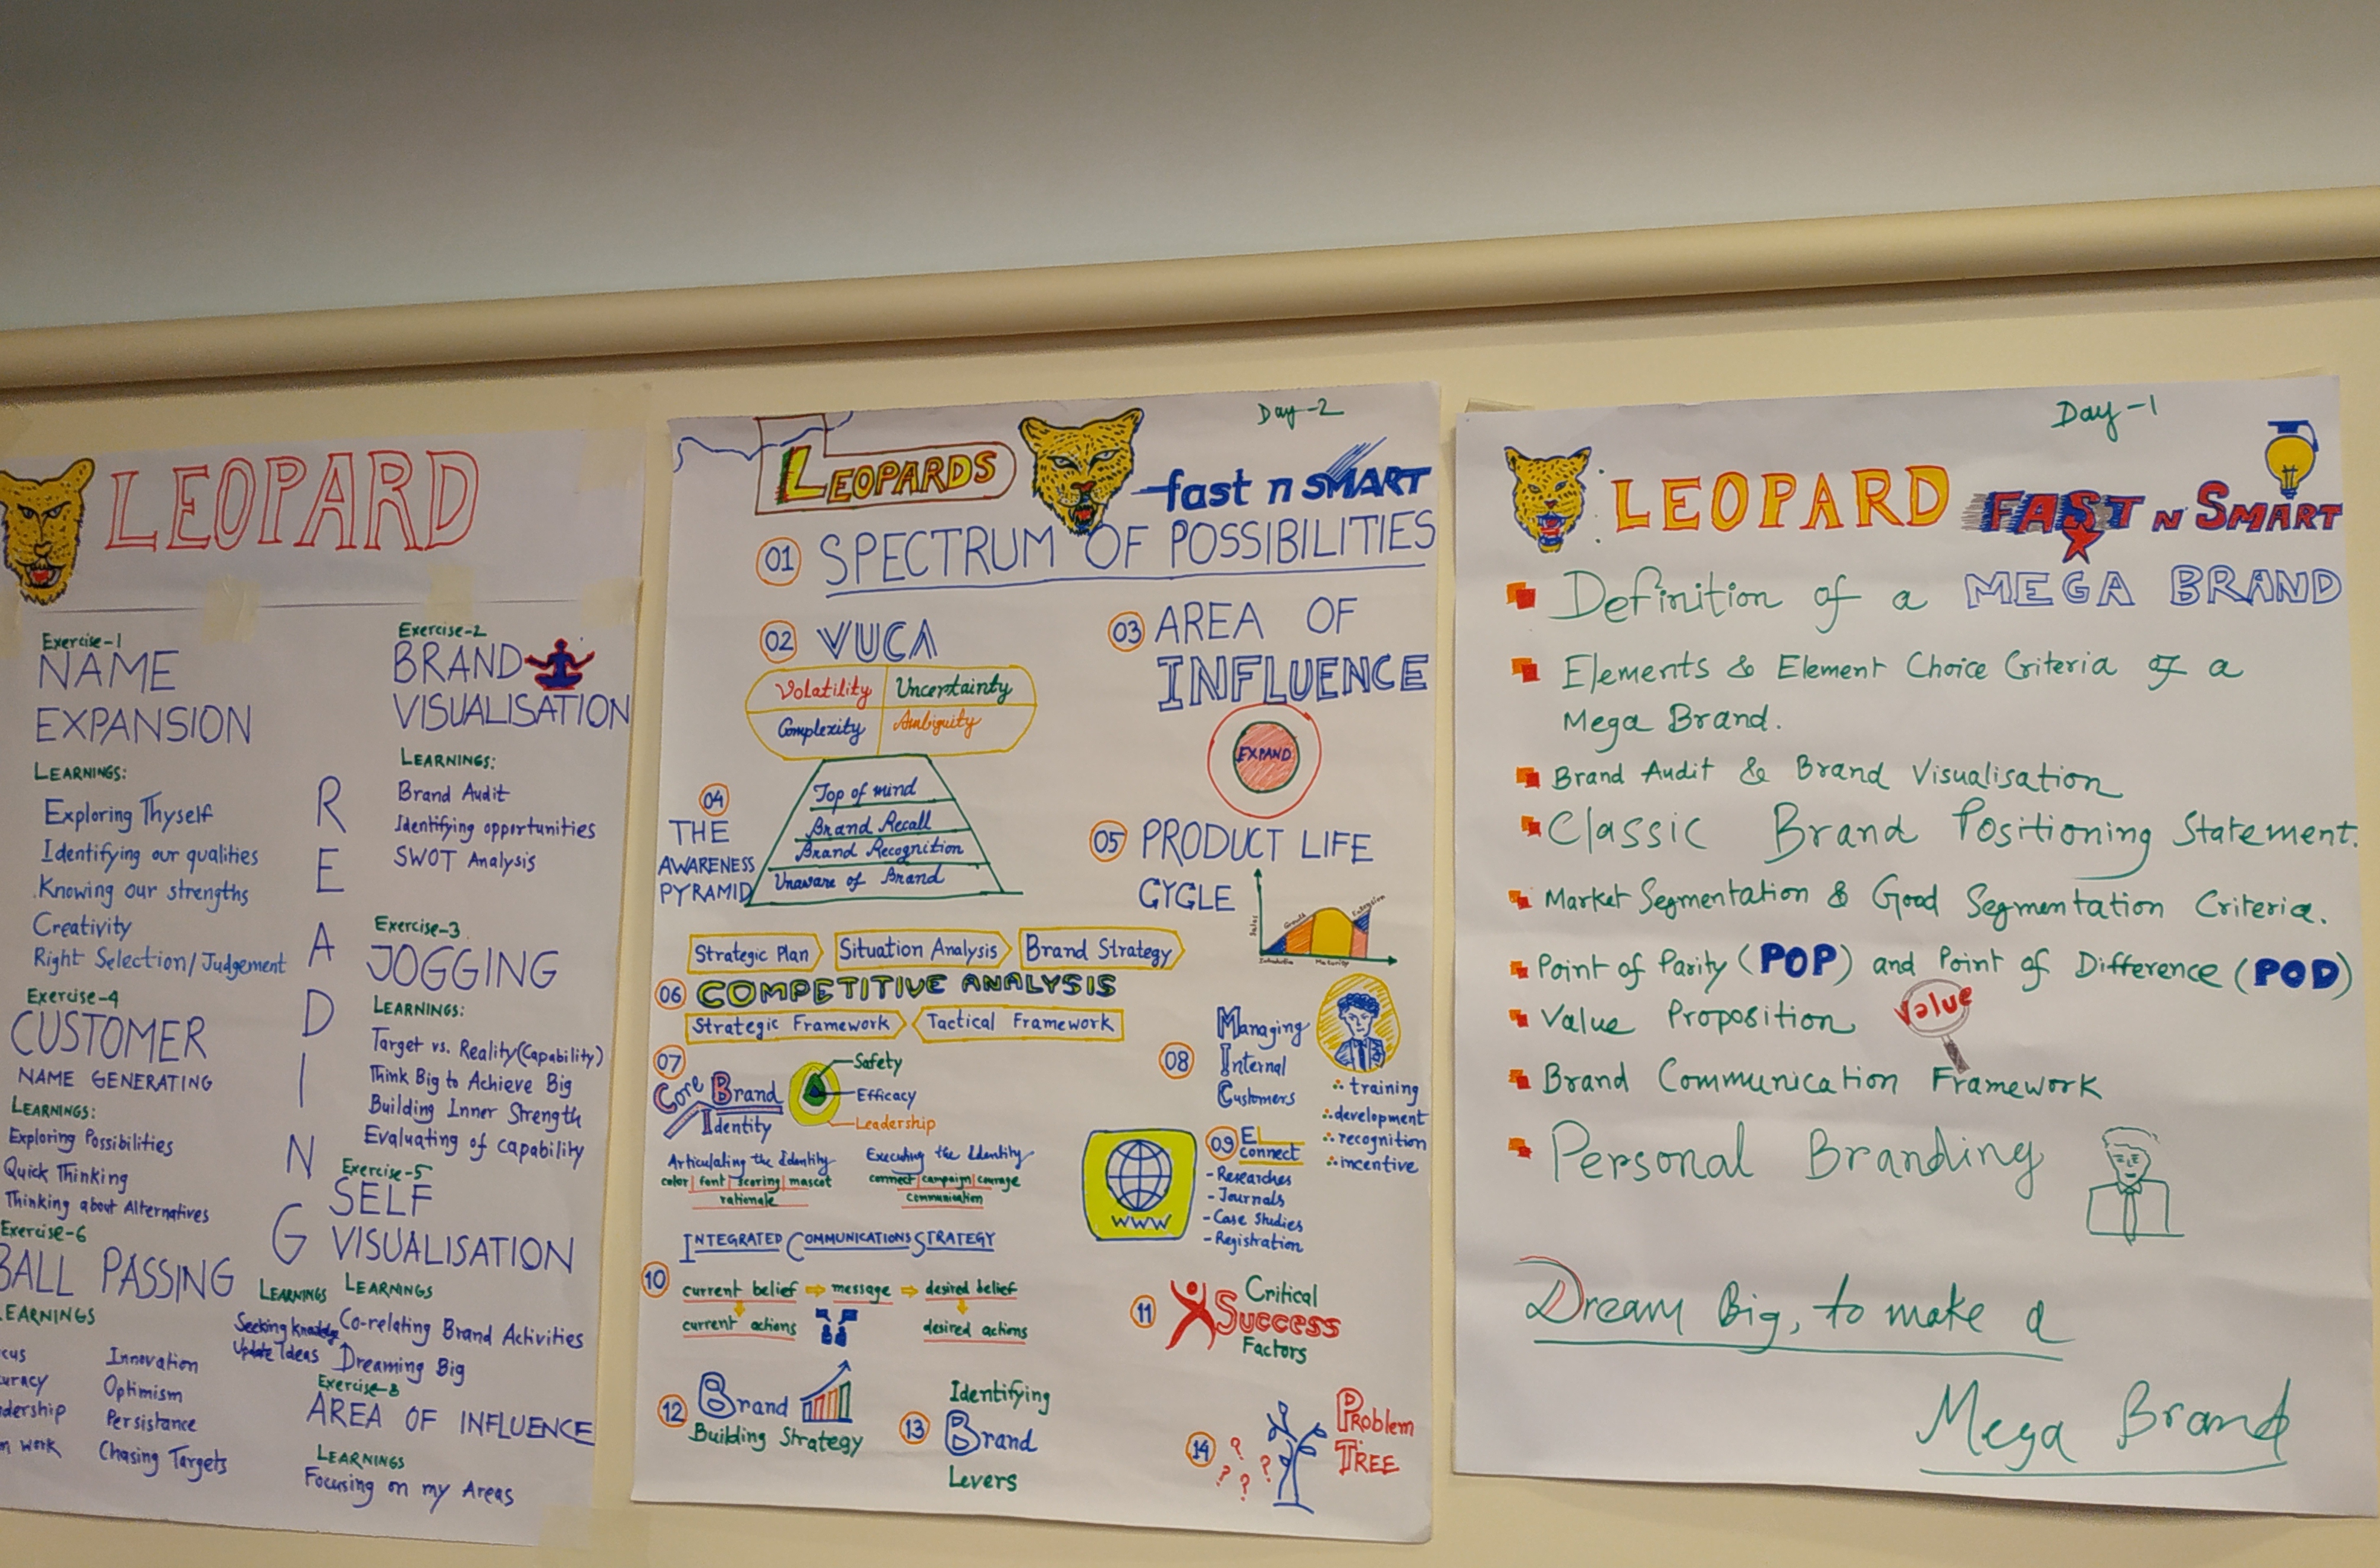 LEOPARD
Exercise-1
NAME
EXPANSION
LEARNINGS:
Exploring Thyself
Identifying our qualities
Knowing our strengths
Creativity
Right Selection/Judgement
Exercise-2
BRAND
VISUALISATION
LEARNINGS:
Brand Audit
Identifying opportunities
SWOT Analysis
READING
Exercise-3
JOGGING
LEARNINGS:
Target vs. Reality(Capability)
Think Big to Achieve Big
Building Inner Strength
Evaluating of capability
Exercise-4
CUSTOMER
NAME GENERATING
LEARNINGS:
Exploring Possibilities
Quick Thinking
Thinking about Alternatives
Exercise-5
SELF
VISUALISATION
LEARNINGS
Co-relating Brand Activities
Dreaming Big
LEARNINGS
Seeking
Update Ideas
Exercise-6
BALL PASSING
LEARNINGS
cus
uracy
dership
m work
Innovation
Optimism
Persistance
Chasing Targets
Exercise-8
AREA OF INFLUENCE
LEARNINGS
Focusing on my Areas
Day-2
LEOPARDS
fast n SMART
01 SPECTRUM OF POSSIBILITIES
02 VUCA
Volatility Uncertainty
Complexity Ambiguity
03 AREA OF
INFLUENCE
EXPAND
04
THE
AWARENESS
PYRAMID
Top of mind
Brand Recall
Brand Recognition
Unaware of Brand
05 PRODUCT LIFE
CYCLE
Sales
Growth
Introduction
Maturity
Strategic Plan Situation Analysis Brand Strategy
06 COMPETITIVE ANALYSIS
Strategic Framework Tactical Framework
07
Core Brand
Identity
Safety
Efficacy
Leadership
Articulating the Identity
color font scoring mascot
rationale
Executing the Identity
connect campaign courage
communication
08
Managing
Internal
Customers
training
development
recognition
incentive
09 EL
connect
WWW
- Researches
- Journals
- Case Studies
- Registration
INTEGRATED COMMUNICATIONS STRATEGY
10
current belief message desired belief
current actions desired actions
11
Critical
SUCCESS
Factors
12 Brand
Building Strategy
13
Identifying
Brand
Levers
14
PROBLEM
TREE
? ? ? ?
Day-1
LEOPARD FAST N SMART
Definition of a MEGA BRAND
Elements & Element Choice Criteria of a
Mega Brand.
Brand Audit & Brand Visualisation
Classic Brand Positioning Statement.
Market Segmentation & Good Segmentation Criteria.
Point of Parity (POP) and Point of Difference (POD)
Value Proposition Value
Brand Communication Framework
Personal Branding
Dream Big, to make a
Mega Brand